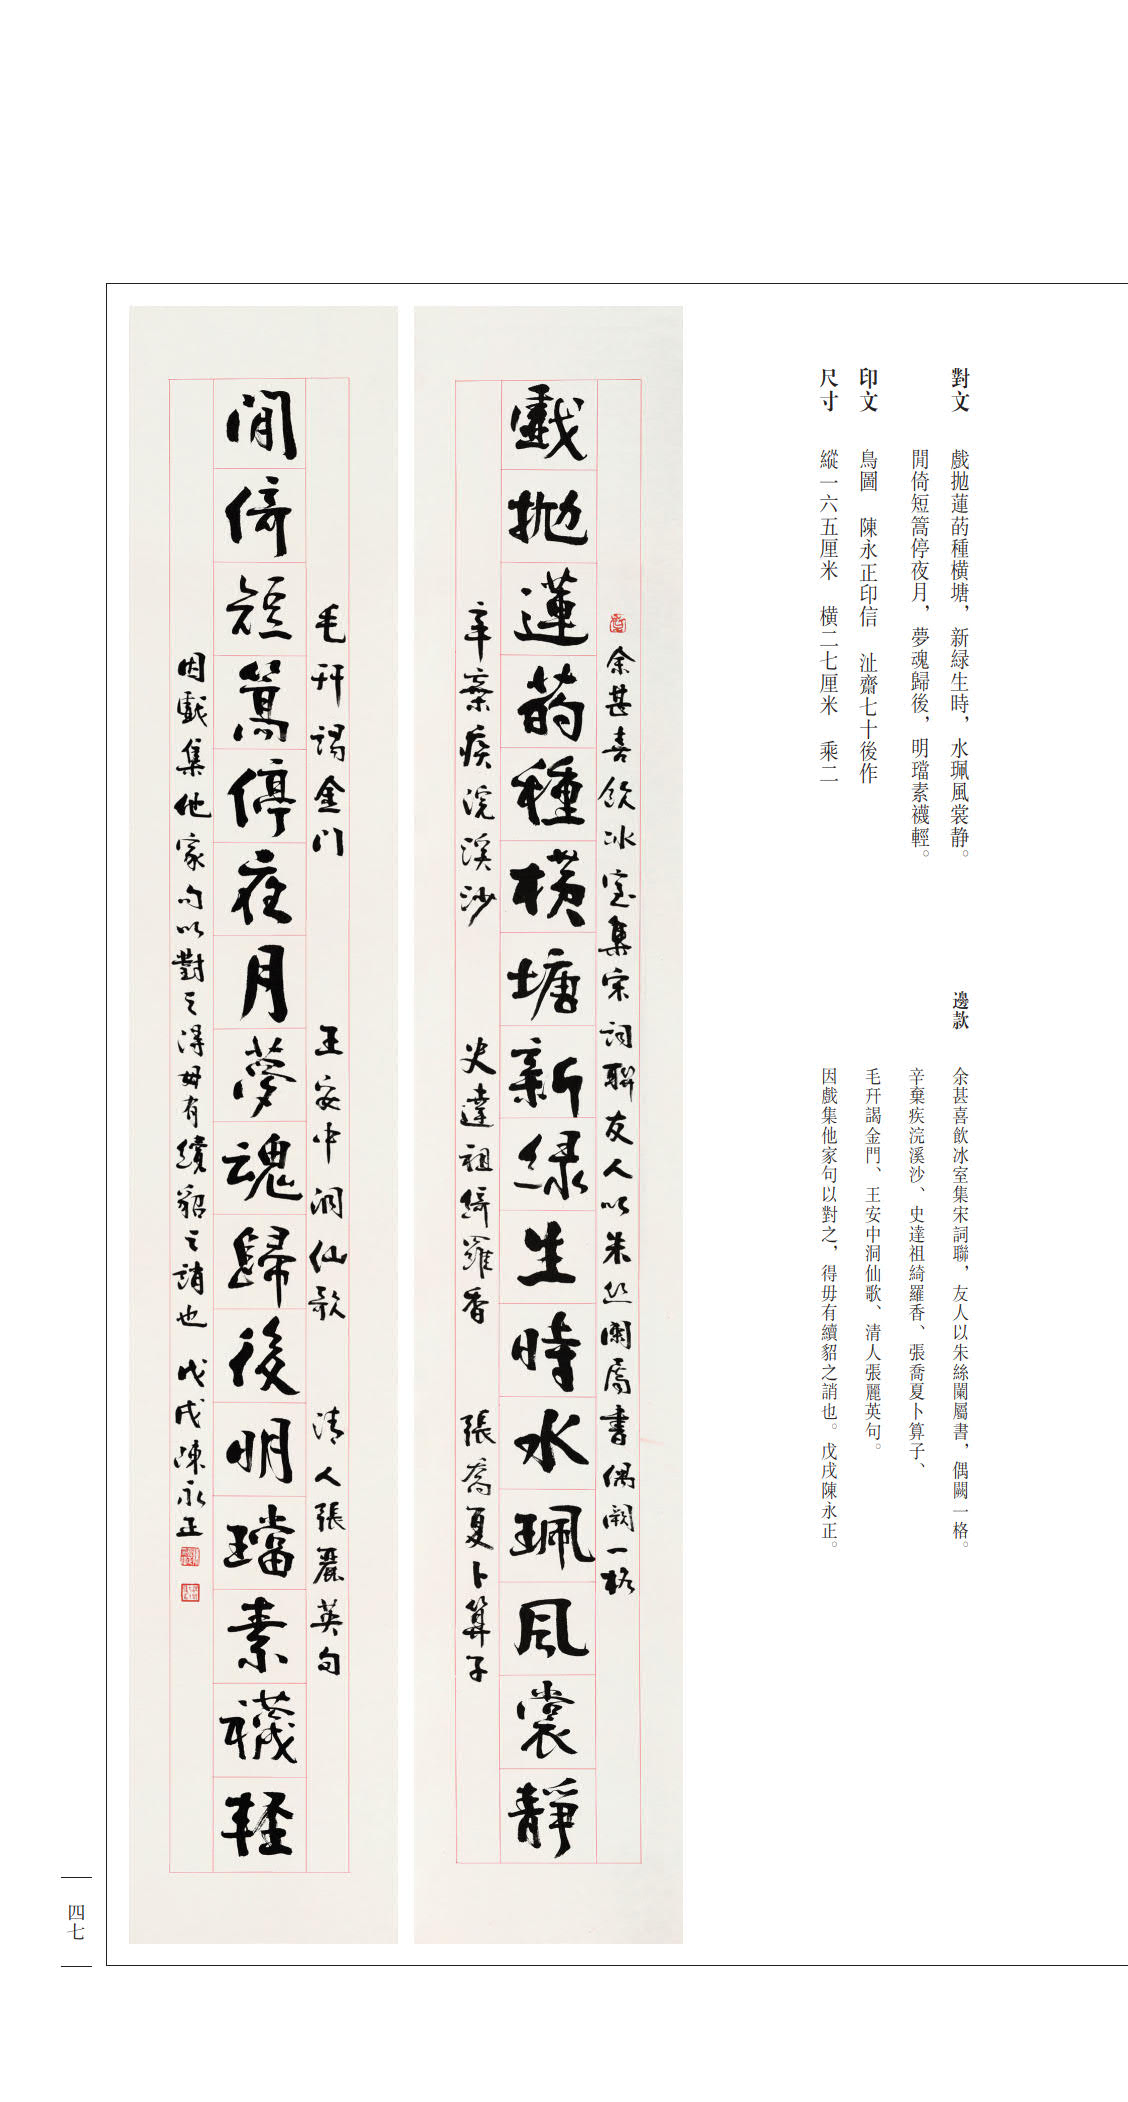 對文　戲拋蓮菂種横塘，新緑生時，水珮風裳静。
閒倚短篙停夜月，夢魂歸後，明璫素襪輕。
印文　鳥圖　陳永正印信　沚齋七十後作
尺寸　縱一六五厘米　横二七厘米　乘二
邊款　余甚喜飲冰室集宋詞聯，友人以朱絲闌屬書，偶闕一格。
辛棄疾浣溪沙、史達祖綺羅香、張喬夏卜算子、
毛幵謁金門、王安中洞仙歌、清人張麗英句。
因戲集他家句以對之，得毋有續貂之誚也。戊戌陳永正。
余甚喜飲冰室集宋詞聯友人以朱丝闌屬書偶闕一格
戲拋蓮菂種横塘新緑生時水珮風裳静
辛棄疾浣溪沙　史達祖綺羅香　張喬夏卜算子
毛幵謁金门　王安中洞仙歌　清人張麗英句
閒倚短篙停夜月夢魂歸後明璫素襪輕
因戲集他家句以對之得毋有續貂之誚也　戊戌陳永正
四七